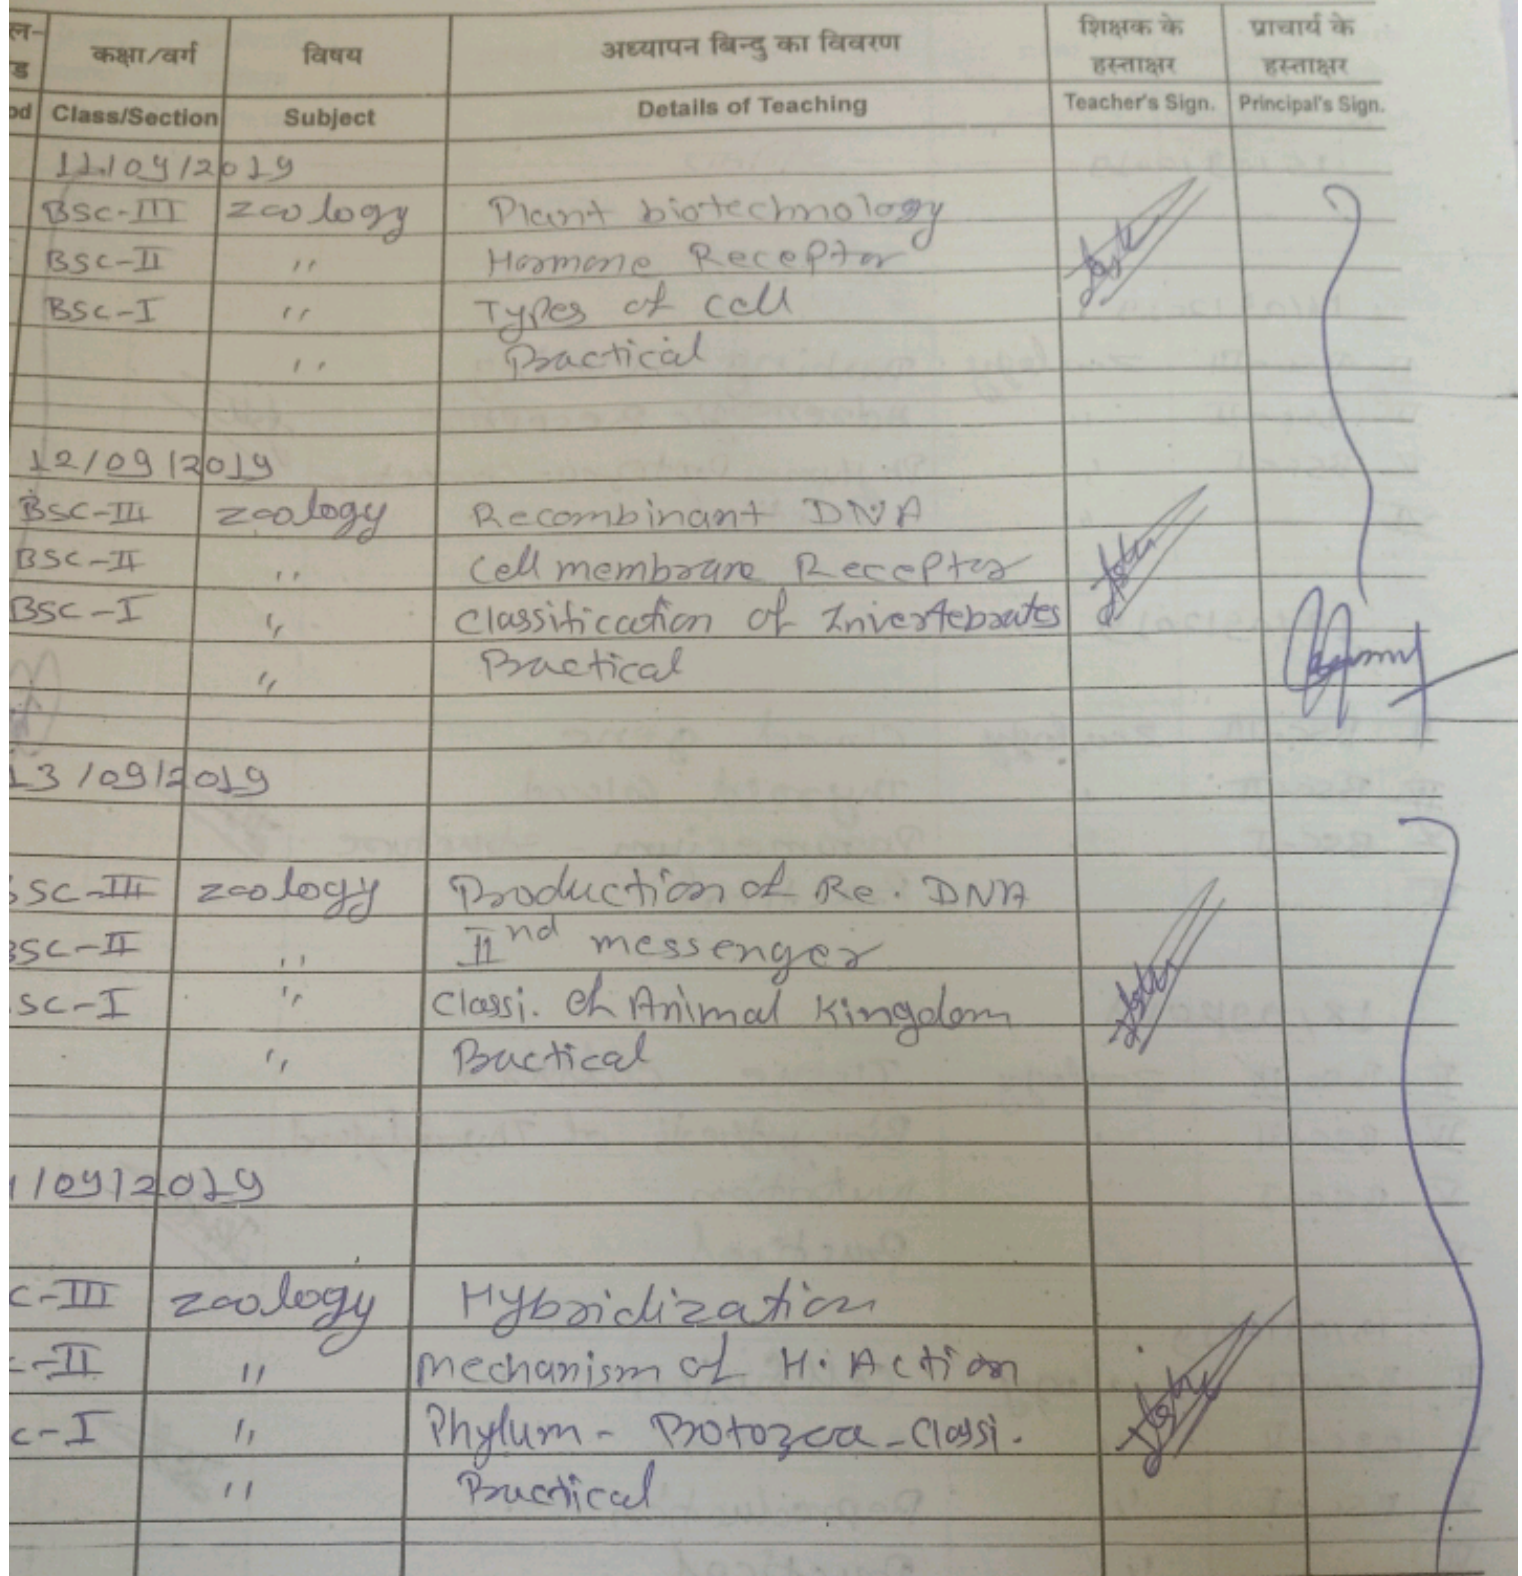 ल- कक्षा/वर्ग विषय अध्यापन बिन्दु का विवरण शिक्षक के हस्ताक्षर प्राचार्य के हस्ताक्षर
ड
od Class/Section Subject Details of Teaching Teacher's Sign. Principal's Sign.
11/09/2019
BSC-III zoology Plant biotechnology
BSC-II " Hormone Receptor
BSC-I " Types of cell
" Practical
12/09/2019
BSC-III zoology Recombinant DNA
BSC-II " Cell membrane Receptor
BSC-I " Classification of Invertebrates
" Practical
13/09/2019
SC-III zoology Production of Re. DNA
BSC-II " IInd messenger
SC-I " Classi. of Animal Kingdom
" Practical
/09/2019
C-III zoology Hybridization
-II " Mechanism of H. Action
C-I " Phylum - Protozoa - Classi.
" Practical